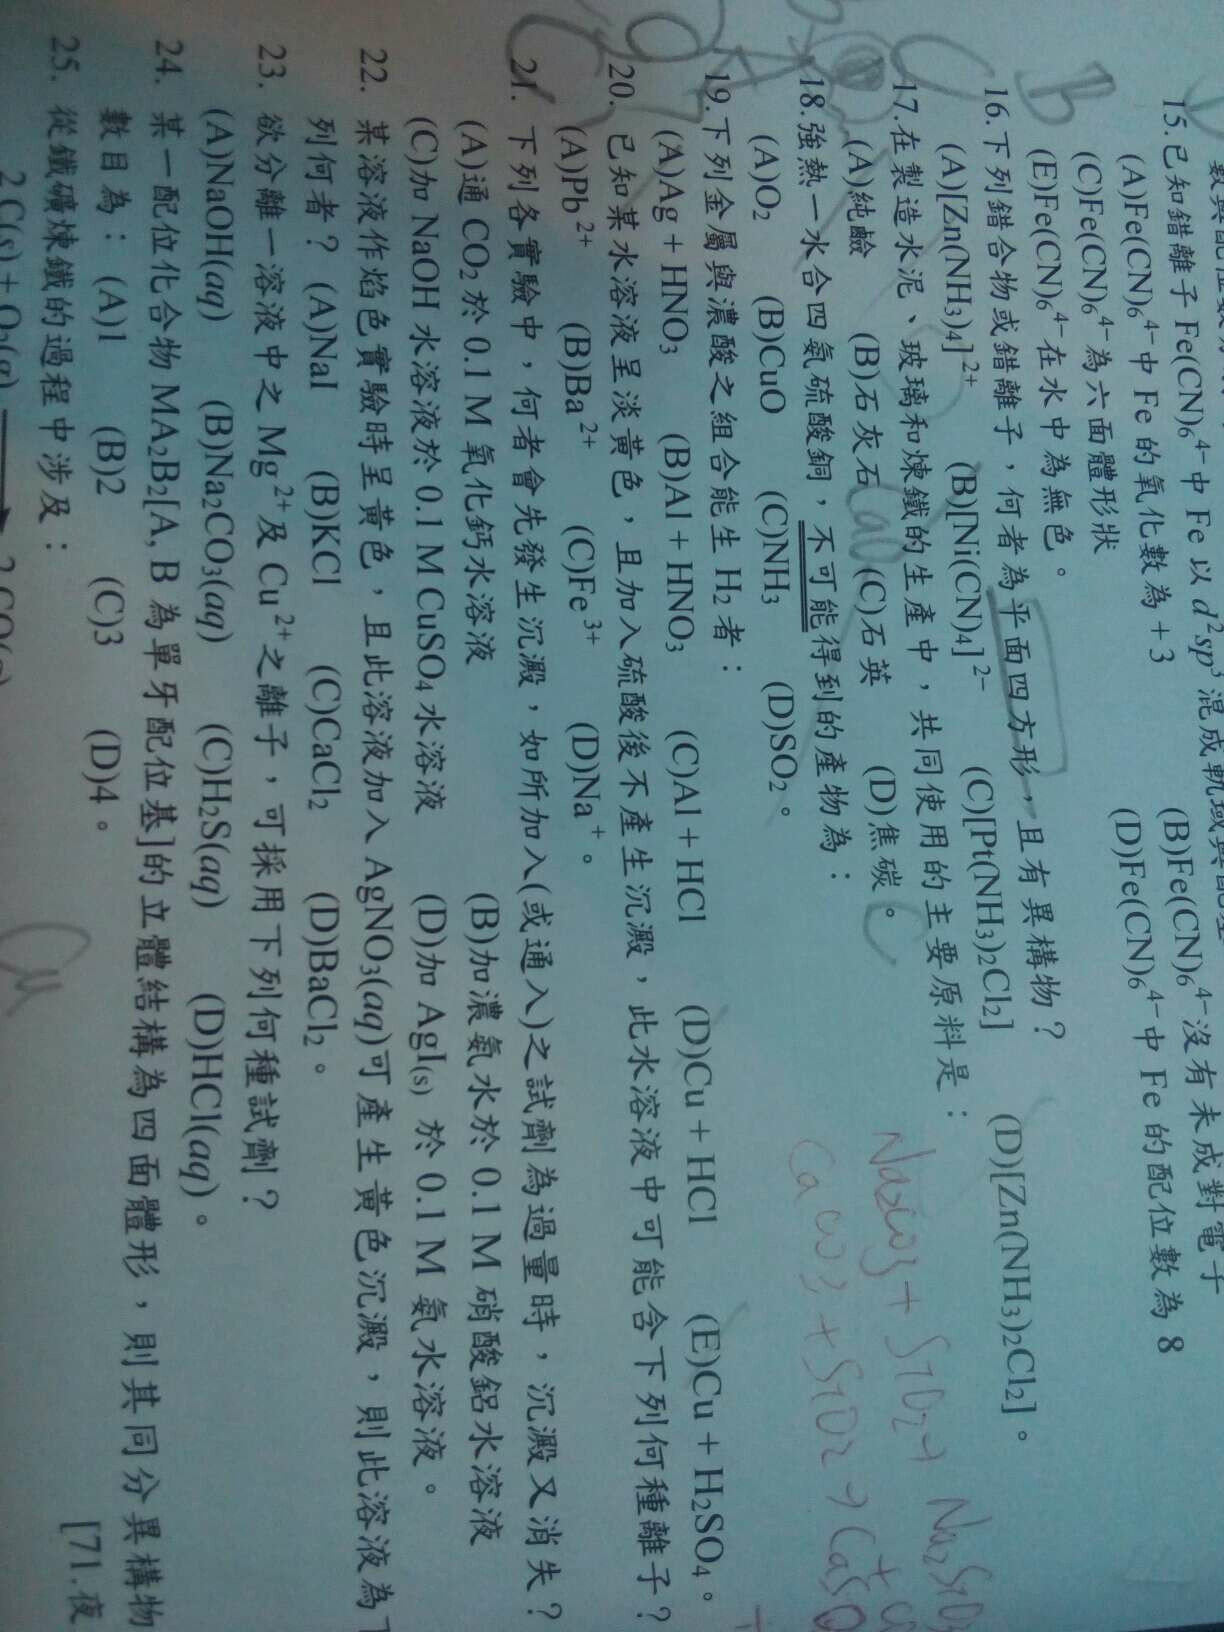 15.已知錯離子 Fe(CN)6 4-中 Fe 以 d2sp3 混成軌域與配
(A)Fe(CN)6 4-中 Fe 的氧化數為+3 (B)Fe(CN)6 4-沒有未成對電子
(C)Fe(CN)6 4-為六面體形狀 (D)Fe(CN)6 4-中 Fe 的配位數為 8
(E)Fe(CN)6 4-在水中為無色。
B
16.下列錯合物或錯離子,何者為平面四方形,且有異構物?
(A)[Zn(NH3)4]2+ (B)[Ni(CN)4]2- (C)[Pt(NH3)2Cl2] (D)[Zn(NH3)2Cl2]。
C
17.在製造水泥、玻璃和煉鐵的生產中,共同使用的主要原料是:
(A)純鹼 (B)石灰石 (C)石英 (D)焦碳。
CaO
C
Na2CO3 + SiO2 → Na2SiO3
CaCO3 + SiO2 →
18.強熱一水合四氨硫酸銅,不可能得到的產物為:
(A)O2 (B)CuO (C)NH3 (D)SO2。
19.下列金屬與濃酸之組合能生 H2 者:
(A)Ag+HNO3 (B)Al+HNO3 (C)Al+HCl (D)Cu+HCl (E)Cu+H2SO4。
20.已知某水溶液呈淡黃色,且加入硫酸後不產生沉澱,此水溶液中可能含下列何種離子?
(A)Pb2+ (B)Ba2+ (C)Fe3+ (D)Na+。
21. 下列各實驗中,何者會先發生沉澱,如所加入(或通入)之試劑為過量時,沉澱又消失?
(A)通 CO2 於 0.1 M 氧化鈣水溶液 (B)加濃氨水於 0.1 M 硝酸鋁水溶液
(C)加 NaOH 水溶液於 0.1 M CuSO4 水溶液 (D)加 AgI(s) 於 0.1 M 氨水溶液。
22. 某溶液作焰色實驗時呈黃色,且此溶液加入 AgNO3(aq)可產生黃色沉澱,則此溶液為下
列何者? (A)NaI (B)KCl (C)CaCl2 (D)BaCl2。
23. 欲分離一溶液中之 Mg2+及 Cu2+之離子,可採用下列何種試劑?
(A)NaOH(aq) (B)Na2CO3(aq) (C)H2S(aq) (D)HCl(aq)。
24. 某一配位化合物 MA2B2[A, B 為單牙配位基]的立體結構為四面體形,則其同分異構物
數目為: (A)1 (B)2 (C)3 (D)4。 [71.夜
25. 從鐵礦煉鐵的過程中涉及:
2 C(s)+O2(g) → 2 CO(g)